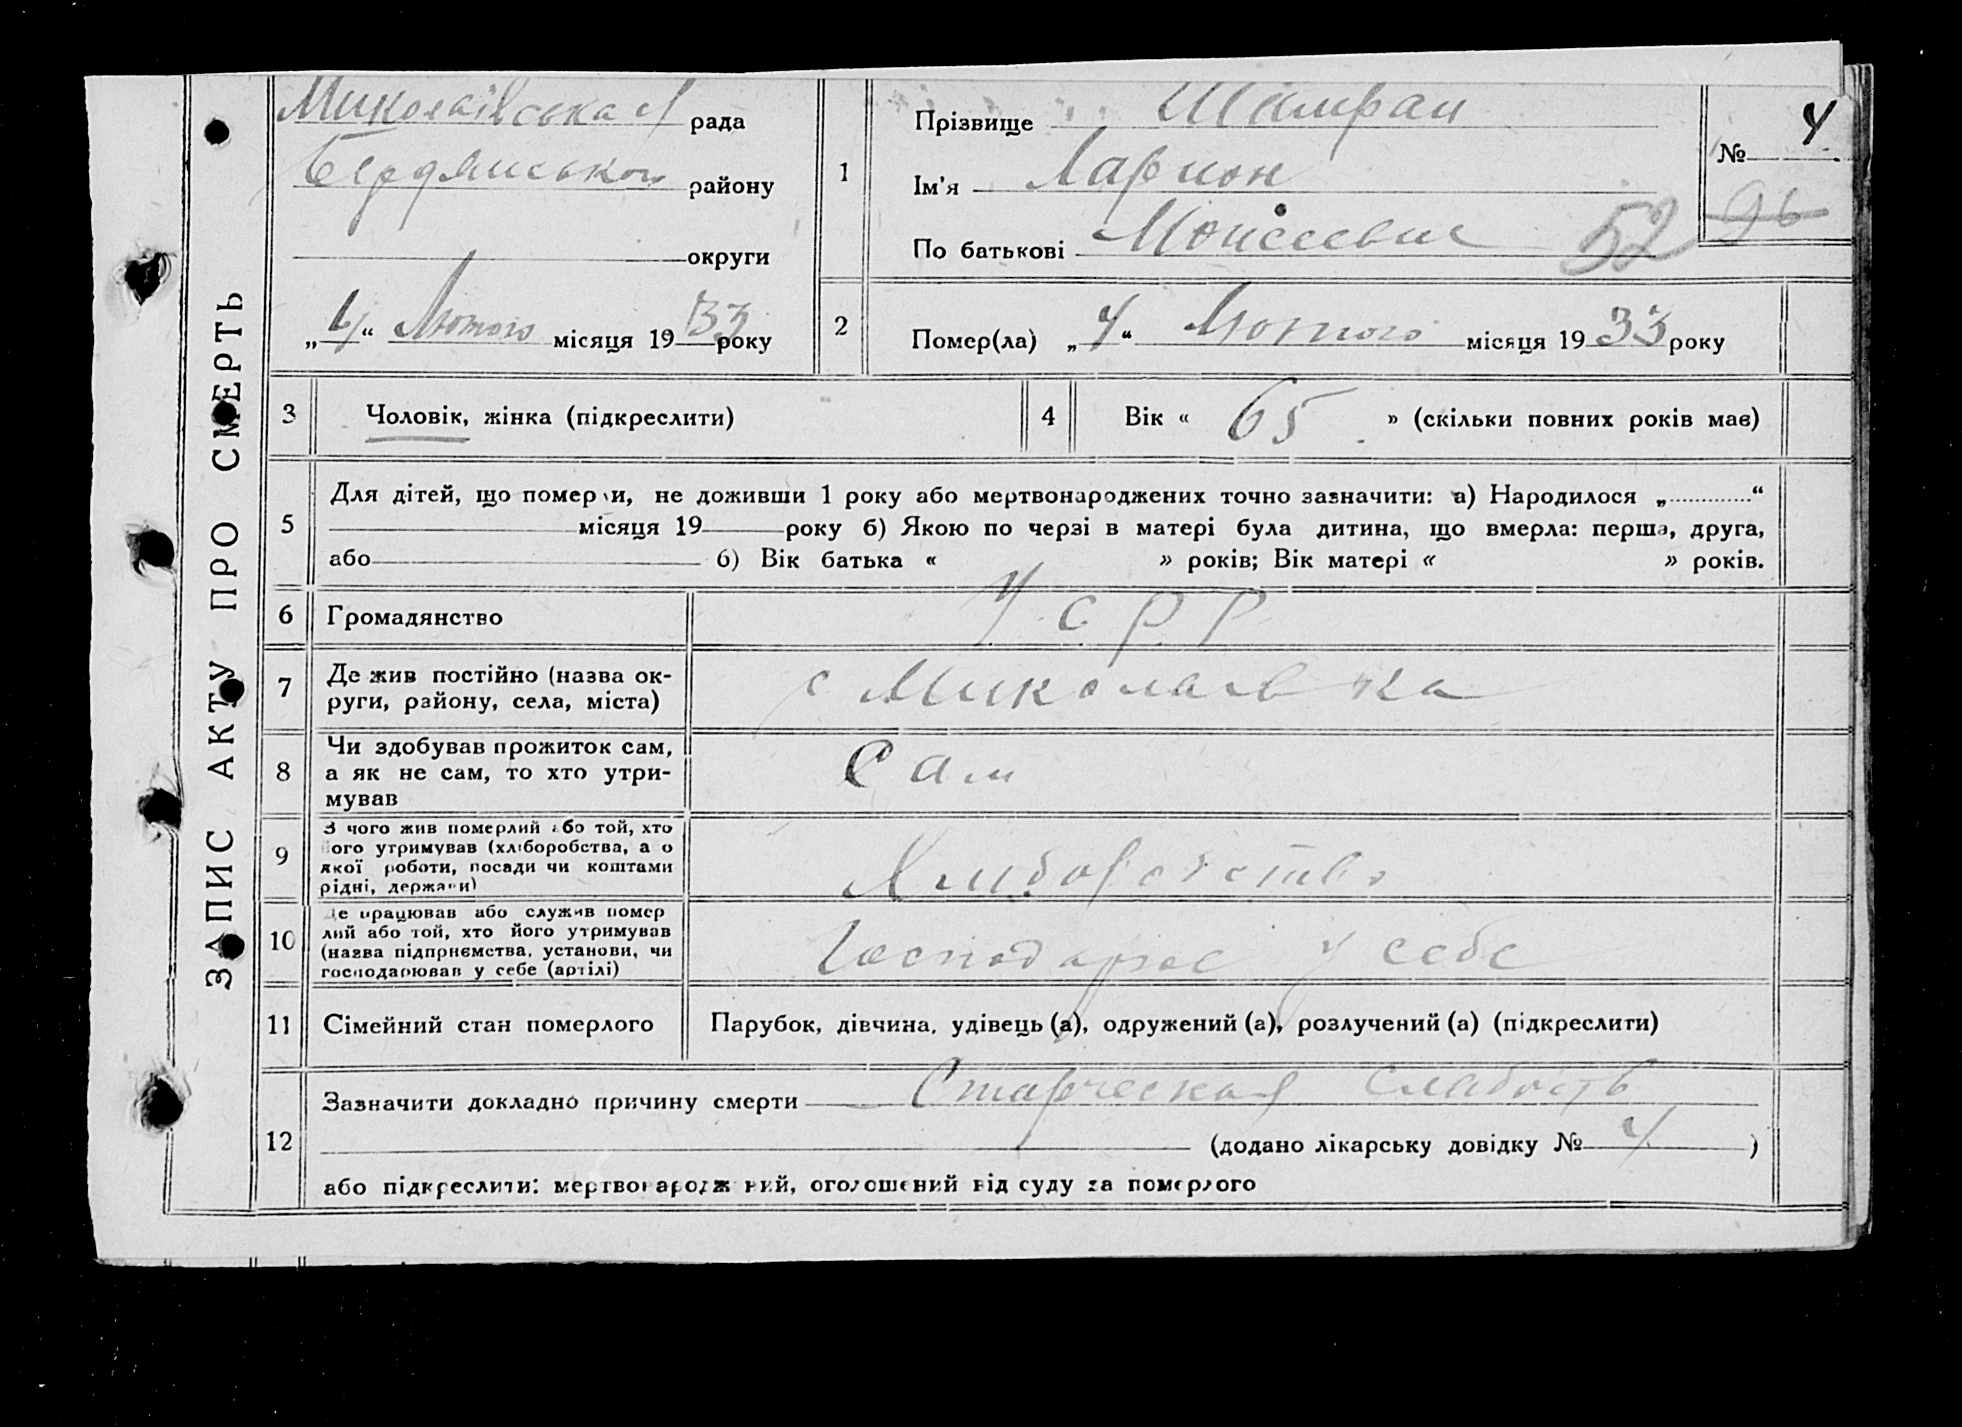 ЗАПИС АКТУ ПРО СМЕРТЬ
Миколаївська рада
Бердянського району
округи
„4“ Лютого місяця 1933 року
1
Прізвище Шамрай
Ім'я Ларион
По батькові Моисеевич
№ 4
52 96
2
Помер(ла) „4“ Лютого місяця 1933 року
3 Чоловік, жінка (підкреслити)
4 Вік « 65 » (скільки повних років має)
5
Для дітей, що померли, не доживши 1 року або мертвонароджених точно зазначити: а) Народилося „ “
місяця 19 року б) Якою по черзі в матері була дитина, що вмерла: перша, друга,
або б) Вік батька « » років; Вік матері « » років.
6 Громадянство УСРР
7 Де жив постійно (назва ок-
руги, району, села, міста)
с Миколаевка
8 Чи здобував прожиток сам,
а як не сам, то хто утри-
мував
Сам
9 З чого жив померлий або той, хто
його утримував (хліборобства, а о
якої роботи, посади чи коштами
рідні, держави)
Хлиборобство
10 Де працював або служив помер
лий або той, хто його утримував
(назва підприємства, установи, чи
господарював у себе (артілі)
Господарює у себе
11 Сімейний стан померлого Парубок, дівчина, удівець (а), одружений (а), розлучений (а) (підкреслити)
12
Зазначити докладно причину смерти Старческая слабость
(додано лікарську довідку № 4 )
або підкреслити: мертвонароджений, оголошений від суду за померлого